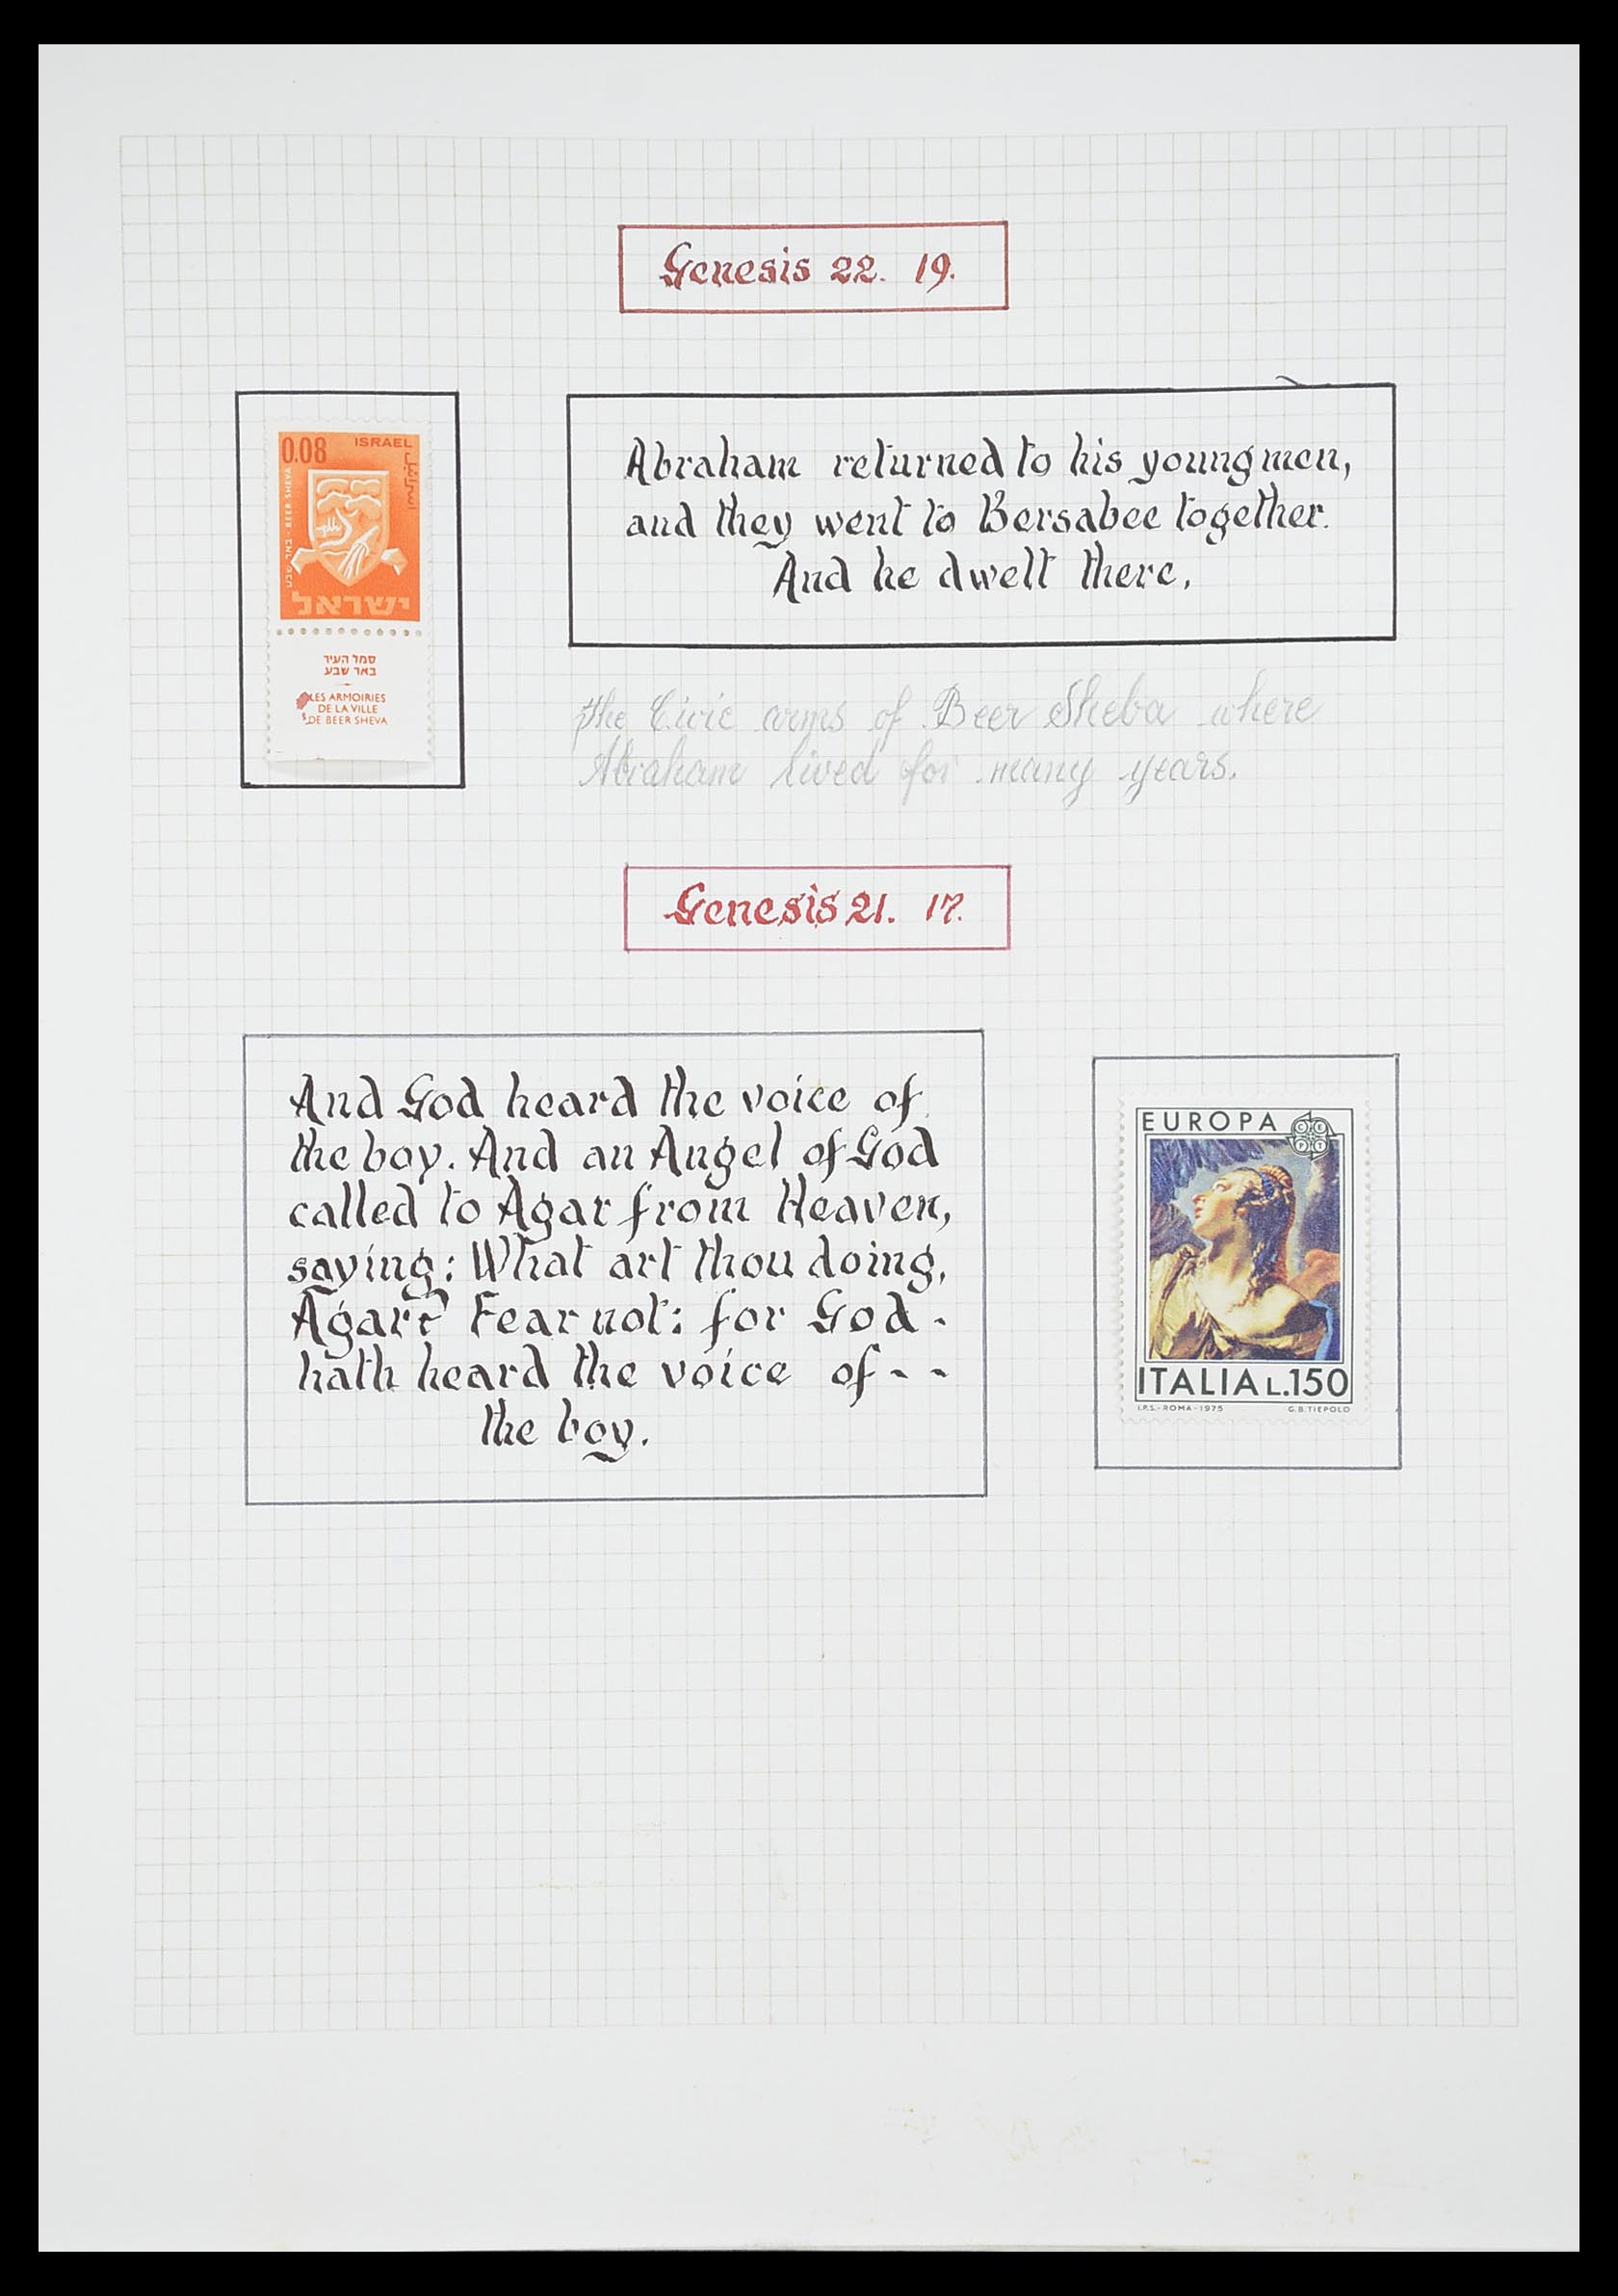 Genesis 22. 19.
0.08 ISRAEL
اسرائيل
באר שבע - BEER SHEVA
ישראל
סמל העיר
באר שבע
LES ARMOIRIES
DE LA VILLE
DE BEER SHEVA
Abraham returned to his young men,
and they went to Bersabee together.
And he dwelt there.
The Civic arms of Beer Sheba where
Abraham lived for many years.
Genesis 21. 17.
And God heard the voice of
the boy. And an Angel of God
called to Agar from Heaven,
saying: What art thou doing,
Agar? Fear not: for God -
hath heard the voice of - -
the boy.
EUROPA
CEPT
ITALIA L.150
I.P.S. - ROMA - 1975 G.B. TIEPOLO